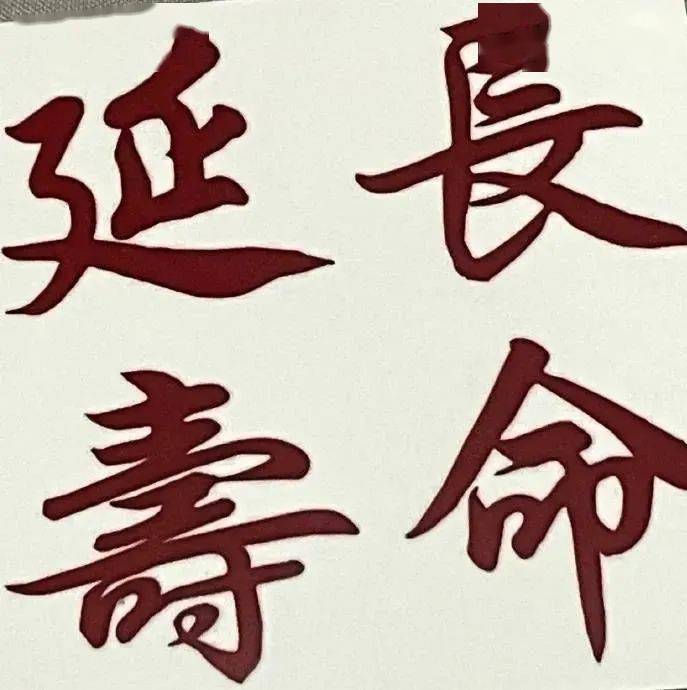 長命
延壽